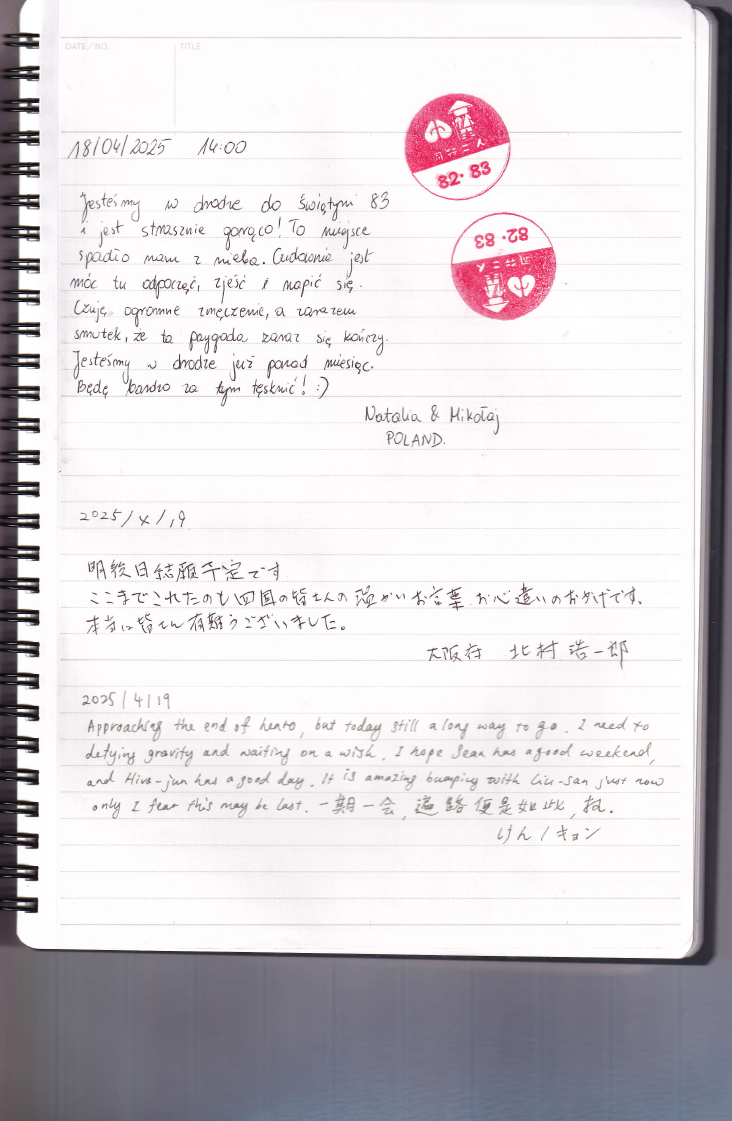 DATE/NO.
TITLE
82・83
82・83
18/04/2025 14:00
Jesteśmy w drodze do świątyni 83
i jest strasznie gorąco! To miejsce
spadło nam z nieba. Cudownie jest
móc tu odpocząć, zjeść i napić się.
Czuję ogromne zmęczenie, a zarazem
smutek, że ta przygoda zaraz się kończy.
Jesteśmy w drodze już ponad miesiąc.
Będę bardzo za tym tęsknić! :)
Natalia & Mikołaj
POLAND.
2025/4/19
明後日結願予定です
ここまでこれたのも四国の皆さんの温かいお言葉、お心遣いのおかげです。
本当に皆さん有難うございました。
大阪府 北村 浩一郎
2025/4/19
Approaching the end of henro, but today still a long way to go. I need to
defying gravity and waiting on a wish. I hope Sean has a good weekend,
and Hiro-jun has a good day. It is amazing bumping with Liu-san just now
only I fear this may be last. 一期一会, 遍路便是如此,
けん / キョン